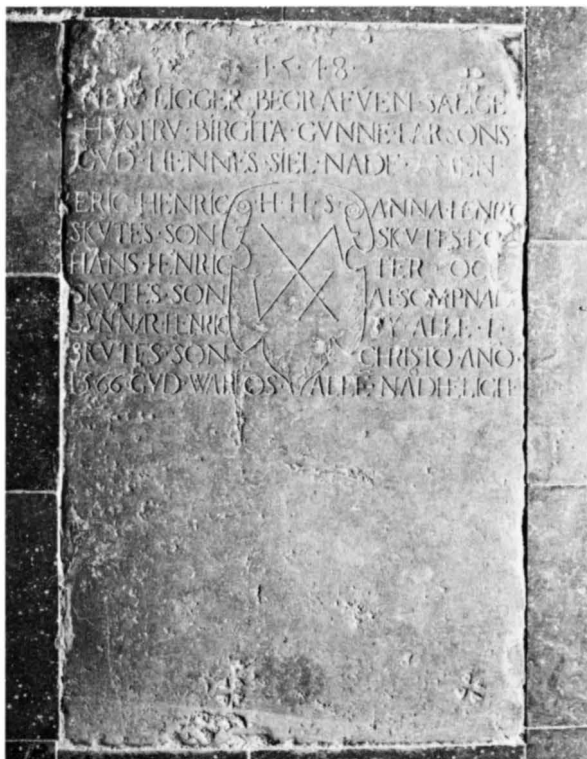 1·5·4·8·
LIGGER·BEGRAFVEN·SALIGE
HVSTRV·BIRGITA·GVNNE·LARSONS·
GVD·HENNES·SIEL·NADE·AMEN
ERIC·HENRIC
SKVTES·SON
HANS·HENRIC
SKVTES·SON
GVNNAR·HENRIC
SKVTES·SON
H·H·S·
ANNA·HENRIC
SKVTES·DO
TER·OC
AFSOMPNAD
Y·ALLE·I·
CHRISTO·ANO·
1566·GVD·WAR·OS·ALLE·NADHELICH·